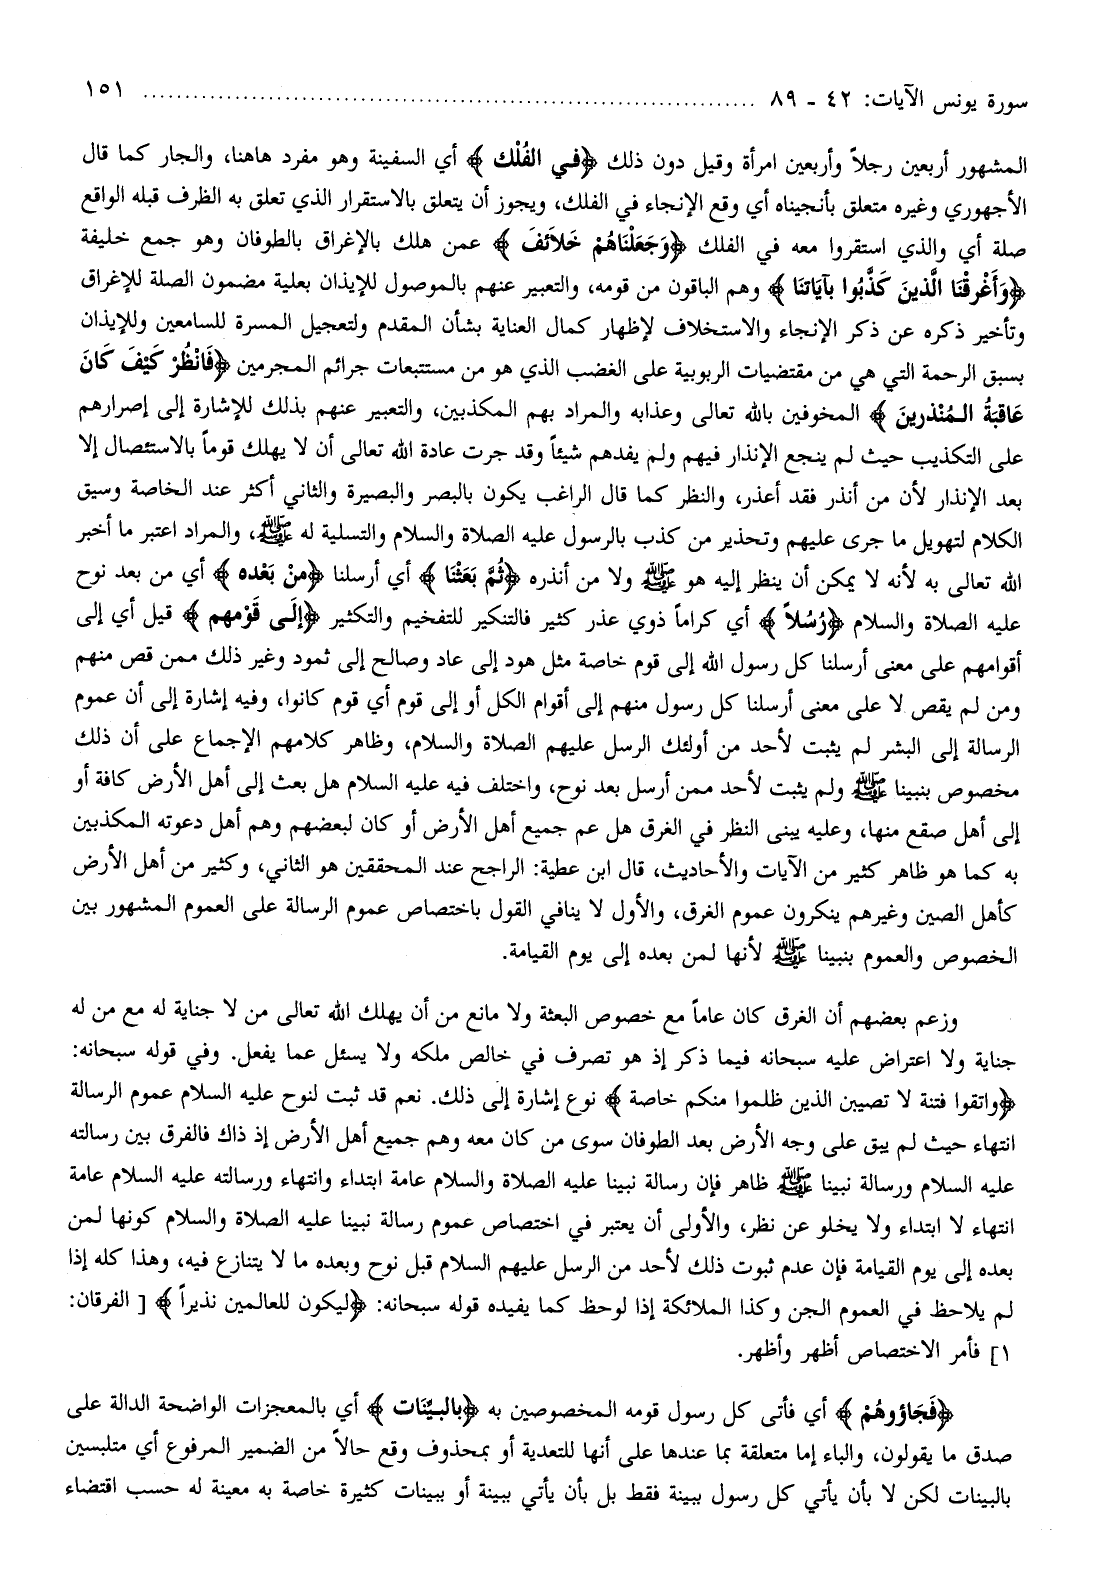 سورة يونس الآيات: ٤٢ - ٨٩ ........................................................................... ١٥١
المشهور أربعين رجلاً وأربعين امرأة وقيل دون ذلك ﴿في الفُلْك﴾ أي السفينة وهو مفرد هاهنا، والجار كما قال
الأجهوري وغيره متعلق بأنجيناه أي وقع الإنجاء في الفلك، ويجوز أن يتعلق بالاستقرار الذي تعلق به الظرف قبله الواقع
صلة أي والذي استقروا معه في الفلك ﴿وَجَعَلْنَاهُمْ خَلائفَ﴾ عمن هلك بالإغراق بالطوفان وهو جمع خليفة
﴿وَأَغْرقْنَا الَّذينَ كَذَّبُوا بآيَاتنَا﴾ وهم الباقون من قومه، والتعبير عنهم بالموصول للإيذان بعلية مضمون الصلة للإغراق
وتأخير ذكره عن ذكر الإنجاء والاستخلاف لإظهار كمال العناية بشأن المقدم ولتعجيل المسرة للسامعين وللإيذان
بسبق الرحمة التي هي من مقتضيات الربوبية على الغضب الذي هو من مستتبعات جرائم المجرمين ﴿فَانْظُرْ كَيْفَ كَانَ
عَاقبَةُ المُنْذرينَ﴾ المخوفين بالله تعالى وعذابه والمراد بهم المكذبين، والتعبير عنهم بذلك للإشارة إلى إصرارهم
على التكذيب حيث لم ينجع الإنذار فيهم ولم يفدهم شيئاً وقد جرت عادة الله تعالى أن لا يهلك قوماً بالاستئصال إلا
بعد الإنذار لأن من أنذر فقد أعذر، والنظر كما قال الراغب يكون بالبصر والبصيرة والثاني أكثر عند الخاصة وسيق
الكلام لتهويل ما جرى عليهم وتحذير من كذب بالرسول عليه الصلاة والسلام والتسلية له ﷺ، والمراد اعتبر ما أخبر
الله تعالى به لأنه لا يمكن أن ينظر إليه هو ﷺ ولا من أنذره ﴿ثُمَّ بَعَثْنَا﴾ أي أرسلنا ﴿منْ بَعْده﴾ أي من بعد نوح
عليه الصلاة والسلام ﴿رُسُلاً﴾ أي كراماً ذوي عذر كثير فالتنكير للتفخيم والتكثير ﴿إلَى قَوْمهم﴾ قيل أي إلى
أقوامهم على معنى أرسلنا كل رسول الله إلى قوم خاصة مثل هود إلى عاد وصالح إلى ثمود وغير ذلك ممن قص منهم
ومن لم يقص لا على معنى أرسلنا كل رسول منهم إلى أقوام الكل أو إلى قوم أي قوم كانوا، وفيه إشارة إلى أن عموم
الرسالة إلى البشر لم يثبت لأحد من أولئك الرسل عليهم الصلاة والسلام، وظاهر كلامهم الإجماع على أن ذلك
مخصوص بنبينا ﷺ ولم يثبت لأحد ممن أرسل بعد نوح، واختلف فيه عليه السلام هل بعث إلى أهل الأرض كافة أو
إلى أهل صقع منها، وعليه يبنى النظر في الغرق هل عم جميع أهل الأرض أو كان لبعضهم وهم أهل دعوته المكذبين
به كما هو ظاهر كثير من الآيات والأحاديث، قال ابن عطية: الراجح عند المحققين هو الثاني، وكثير من أهل الأرض
كأهل الصين وغيرهم ينكرون عموم الغرق، والأول لا ينافي القول باختصاص عموم الرسالة على العموم المشهور بين
الخصوص والعموم بنبينا ﷺ لأنها لمن بعده إلى يوم القيامة.
وزعم بعضهم أن الغرق كان عاماً مع خصوص البعثة ولا مانع من أن يهلك الله تعالى من لا جناية له مع من له
جناية ولا اعتراض عليه سبحانه فيما ذكر إذ هو تصرف في خالص ملكه ولا يسئل عما يفعل. وفي قوله سبحانه:
﴿واتقوا فتنة لا تصيبن الذين ظلموا منكم خاصة﴾ نوع إشارة إلى ذلك. نعم قد ثبت لنوح عليه السلام عموم الرسالة
انتهاء حيث لم يبق على وجه الأرض بعد الطوفان سوى من كان معه وهم جميع أهل الأرض إذ ذاك فالفرق بين رسالته
عليه السلام ورسالة نبينا ﷺ ظاهر فإن رسالة نبينا عليه الصلاة والسلام عامة ابتداء وانتهاء ورسالته عليه السلام عامة
انتهاء لا ابتداء ولا يخلو عن نظر، والأولى أن يعتبر في اختصاص عموم رسالة نبينا عليه الصلاة والسلام كونها لمن
بعده إلى يوم القيامة فإن عدم ثبوت ذلك لأحد من الرسل عليهم السلام قبل نوح وبعده ما لا يتنازع فيه، وهذا كله إذا
لم يلاحظ في العموم الجن وكذا الملائكة إذا لوحظ كما يفيده قوله سبحانه: ﴿ليكون للعالمين نذيراً﴾ [ الفرقان:
١] فأمر الاختصاص أظهر وأظهر.
﴿فَجَاؤوهُمْ﴾ أي فأتى كل رسول قومه المخصوصين به ﴿بالبيِّنَات﴾ أي بالمعجزات الواضحة الدالة على
صدق ما يقولون، والباء إما متعلقة بما عندها على أنها للتعدية أو بمحذوف وقع حالاً من الضمير المرفوع أي متلبسين
بالبينات لكن لا بأن يأتي كل رسول ببينة فقط بل بأن يأتي ببينة أو ببينات كثيرة خاصة به معينة له حسب اقتضاء